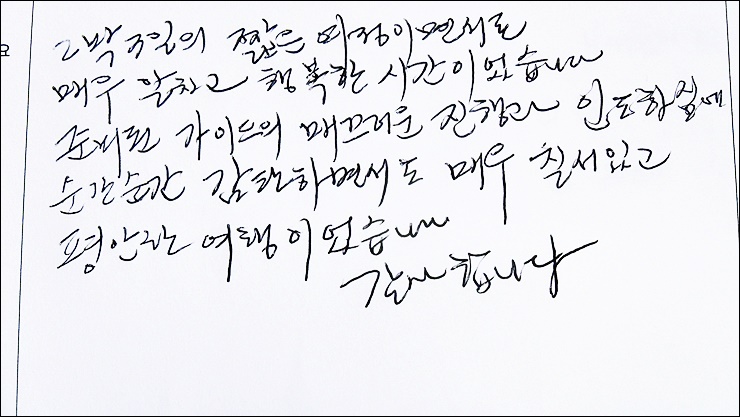 2박 3일의 짧은 여정이면서도
매우 알차고 행복한 시간이었습니다
준비된 가이드의 매끄러운 진행과 인도하심에
순간순간 감탄하면서도 매우 질서있고
평안한 여행이었습니다
감사합니다
요